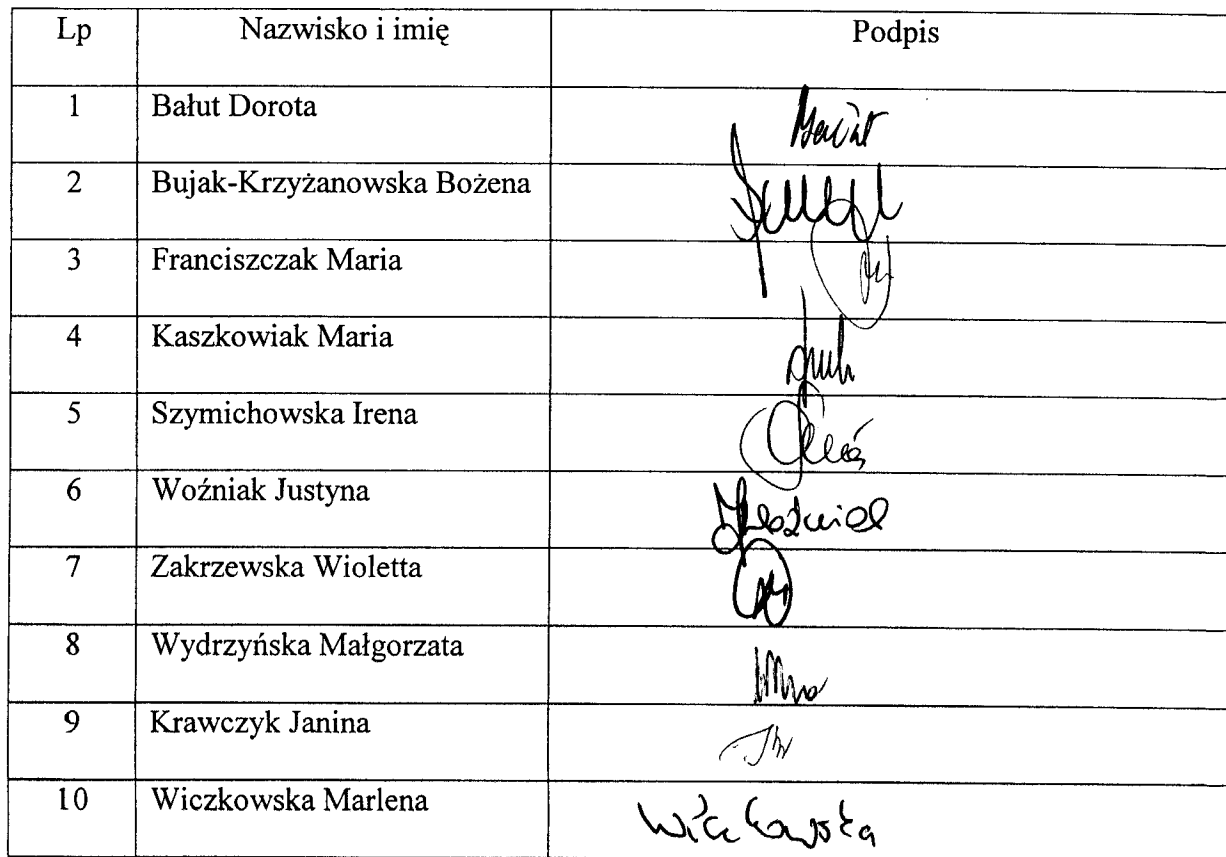 Lp Nazwisko i imię Podpis
1 Bałut Dorota
2 Bujak-Krzyżanowska Bożena
3 Franciszczak Maria
4 Kaszkowiak Maria
5 Szymichowska Irena
6 Woźniak Justyna
7 Zakrzewska Wioletta
8 Wydrzyńska Małgorzata
9 Krawczyk Janina
10 Wiczkowska Marlena